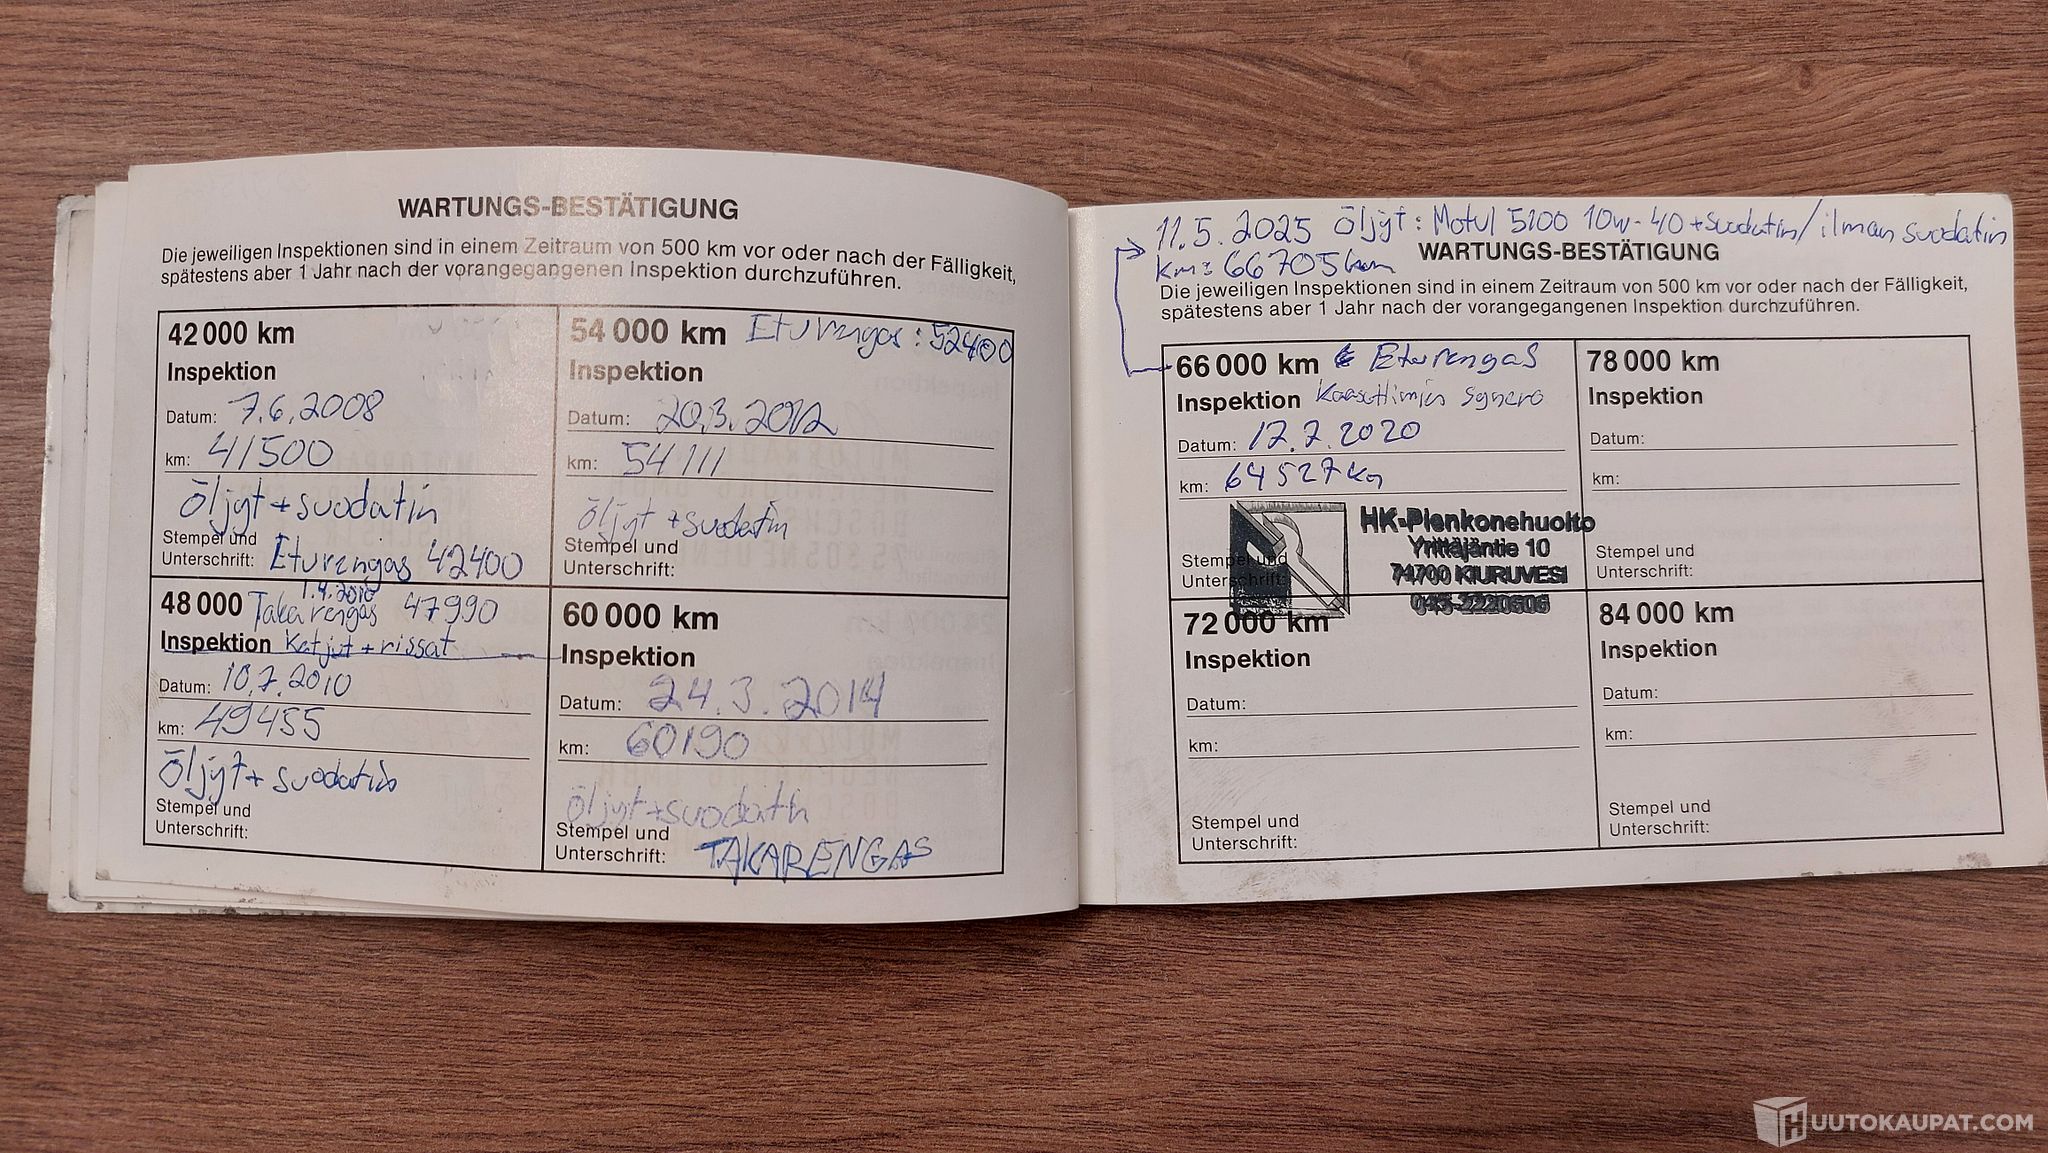 WARTUNGS-BESTÄTIGUNG
Die jeweiligen Inspektionen sind in einem Zeitraum von 500 km vor oder nach der Fälligkeit,
spätestens aber 1 Jahr nach der vorangegangenen Inspektion durchzuführen.
42 000 km
Inspektion
Datum: 7.6.2008
km: 41500
Öljyt + suodatin
Stempel und
Unterschrift: Eturengas 42400
1.4.2010
48 000 Takarengas 47990
Inspektion Ketjut + rissat
Datum: 10.7.2010
km: 49455
Öljyt + suodatin
Stempel und
Unterschrift:
54 000 km Eturengas: 52400
Inspektion
Datum: 20.3.2012
km: 54111
Öljyt + suodatin
Stempel und
Unterschrift:
60 000 km
Inspektion
Datum: 24.3.2014
km: 60190
Öljyt + suodatin
Stempel und
Unterschrift: TAKARENGAS
11.5.2025 Öljyt: Motul 5100 10w-40 + suodatin / ilman suodatin
km: 66705km
WARTUNGS-BESTÄTIGUNG
Die jeweiligen Inspektionen sind in einem Zeitraum von 500 km vor oder nach der Fälligkeit,
spätestens aber 1 Jahr nach der vorangegangenen Inspektion durchzuführen.
66 000 km Eturengas
Inspektion
Datum: 12.7.2020
km: 64527km
HK-Pienkonehuolto
Yrittäjäntie 10
74700 KIURUVESI
045-2220606
Stempel und
Unterschrift:
72 000 km
Inspektion
Datum:
km:
Stempel und
Unterschrift:
78 000 km
Inspektion
Datum:
km:
Stempel und
Unterschrift:
84 000 km
Inspektion
Datum:
km:
Stempel und
Unterschrift:
HUUTOKAUPAT.COM